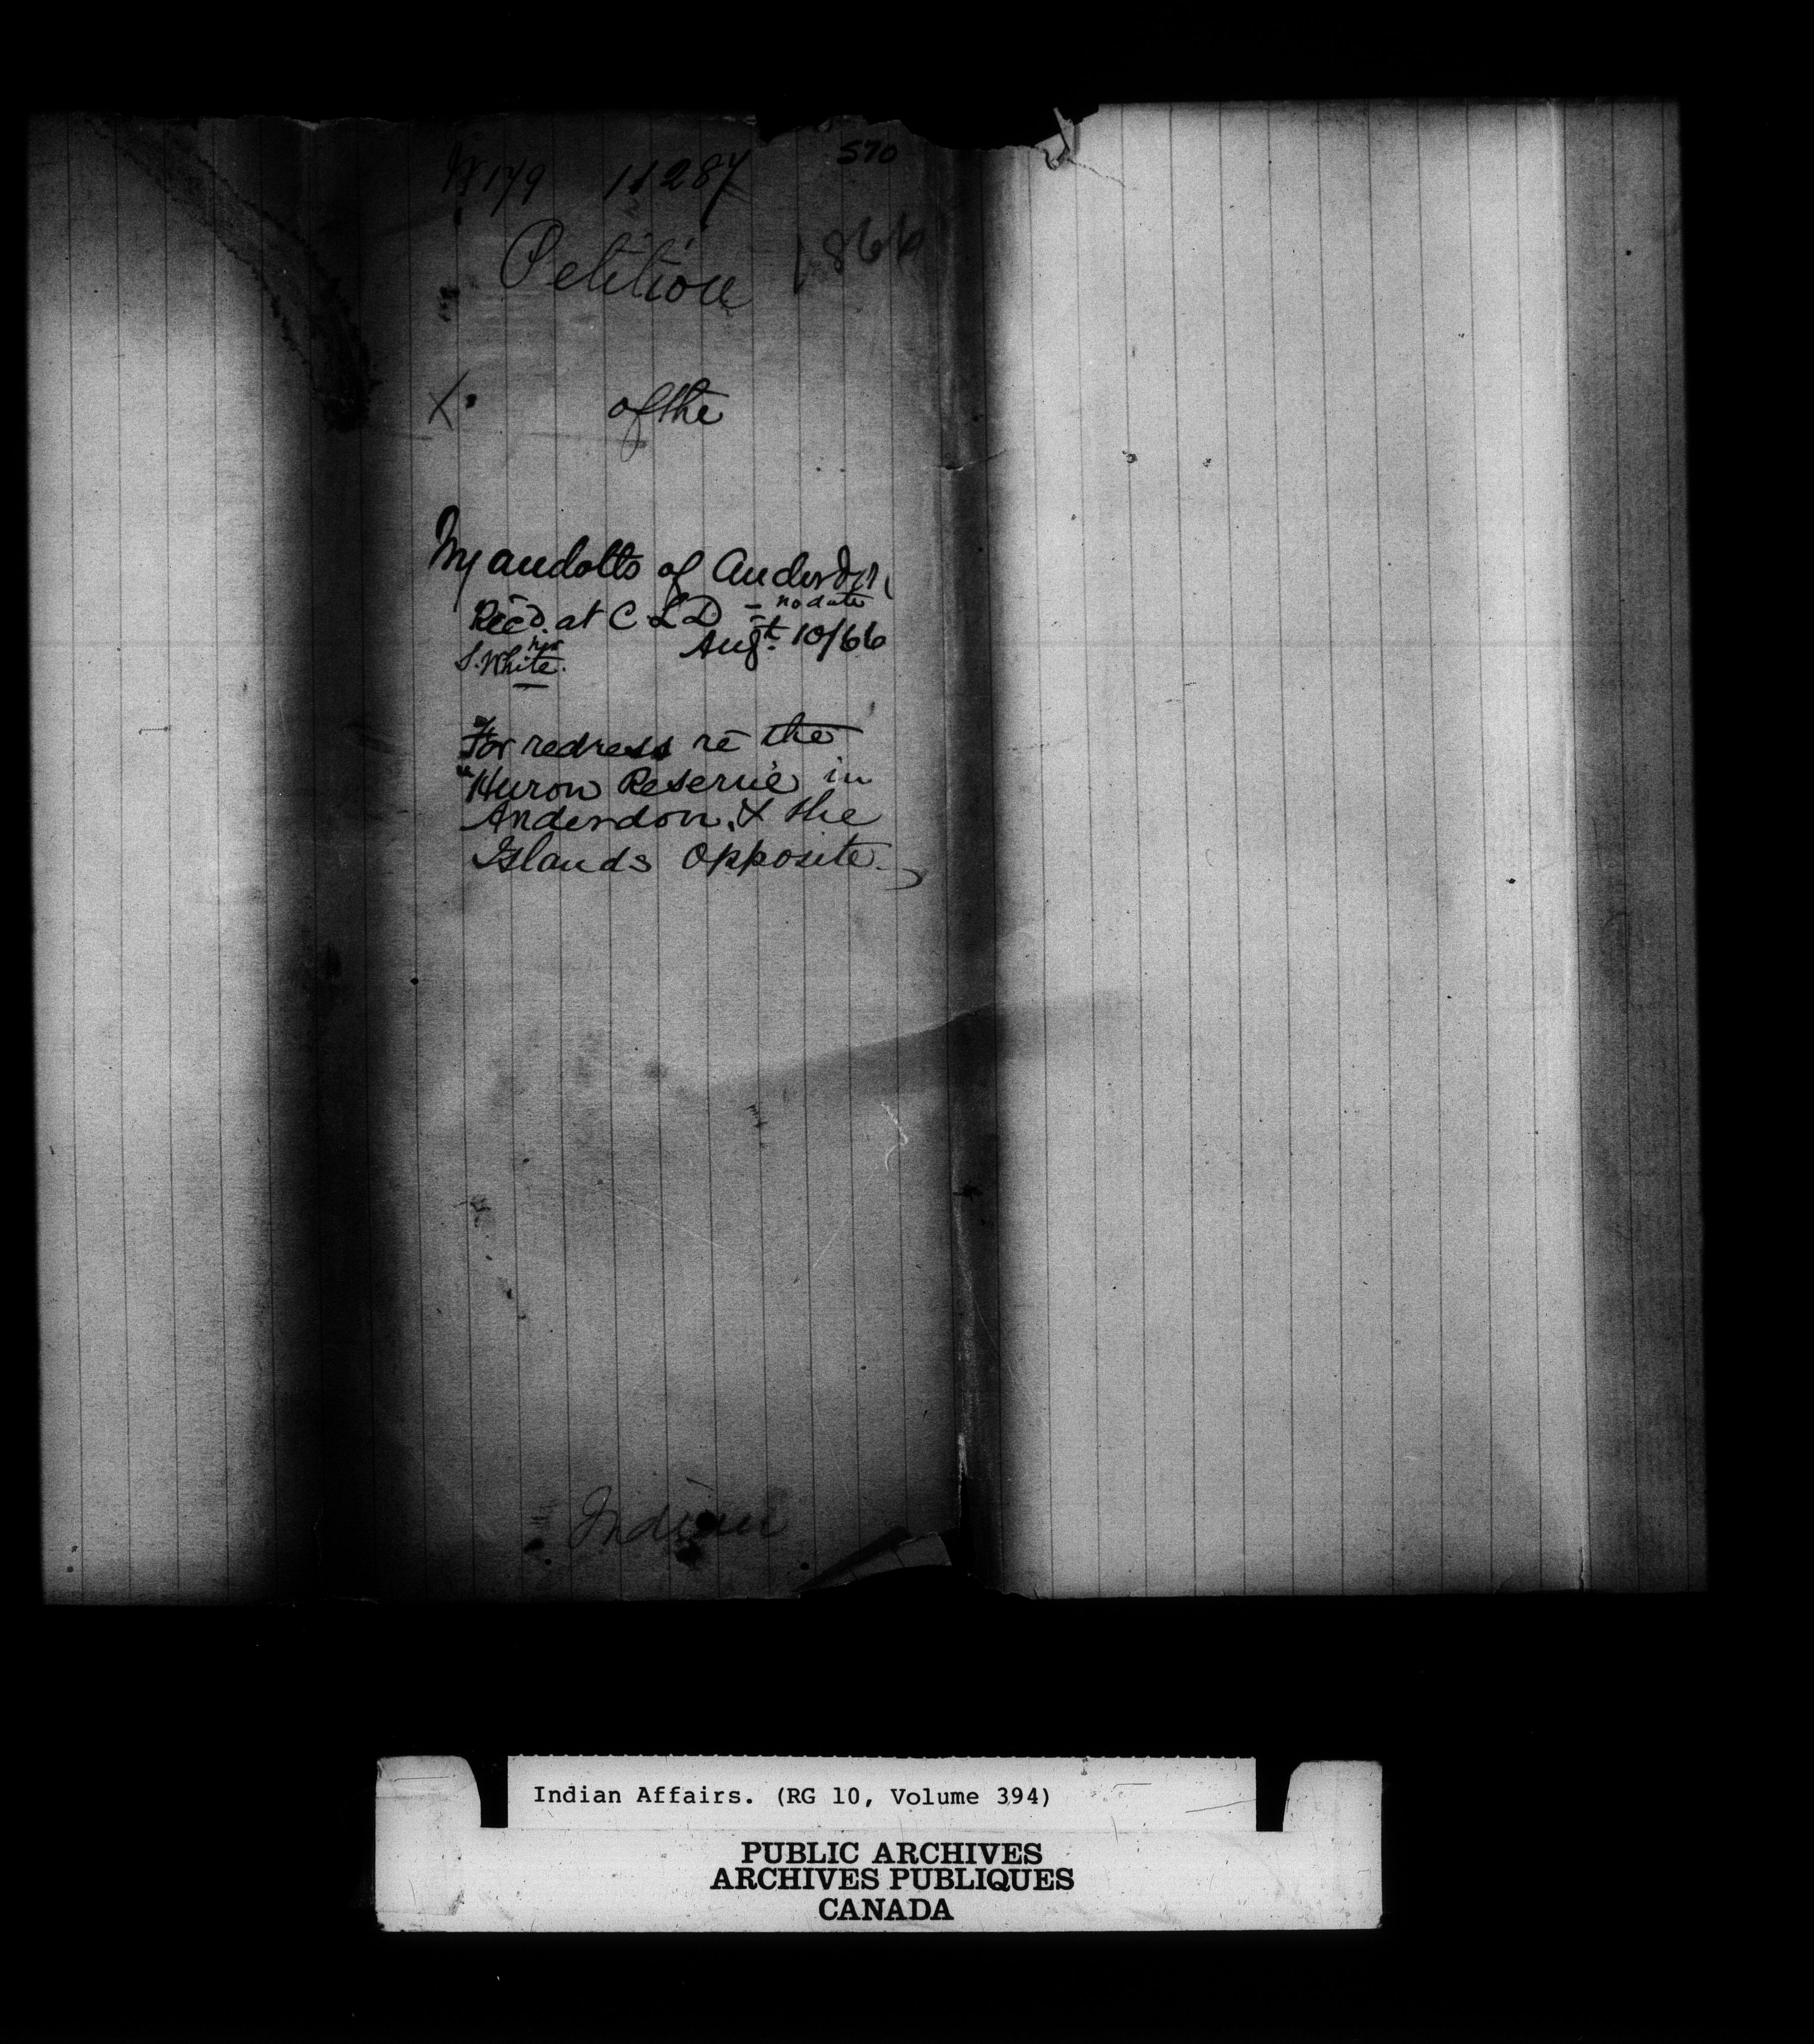 W 179 11287 570
Petition 1866
X of the
Wyandotts of Anderdon
Rec̄d. at C L D – no date
Augt. 10/66
S. White.
For redress re the
"Huron Reserve in
Anderdon, & the
Islands opposite.
Indian
Indian Affairs. (RG 10, Volume 394)
PUBLIC ARCHIVES
ARCHIVES PUBLIQUES
CANADA